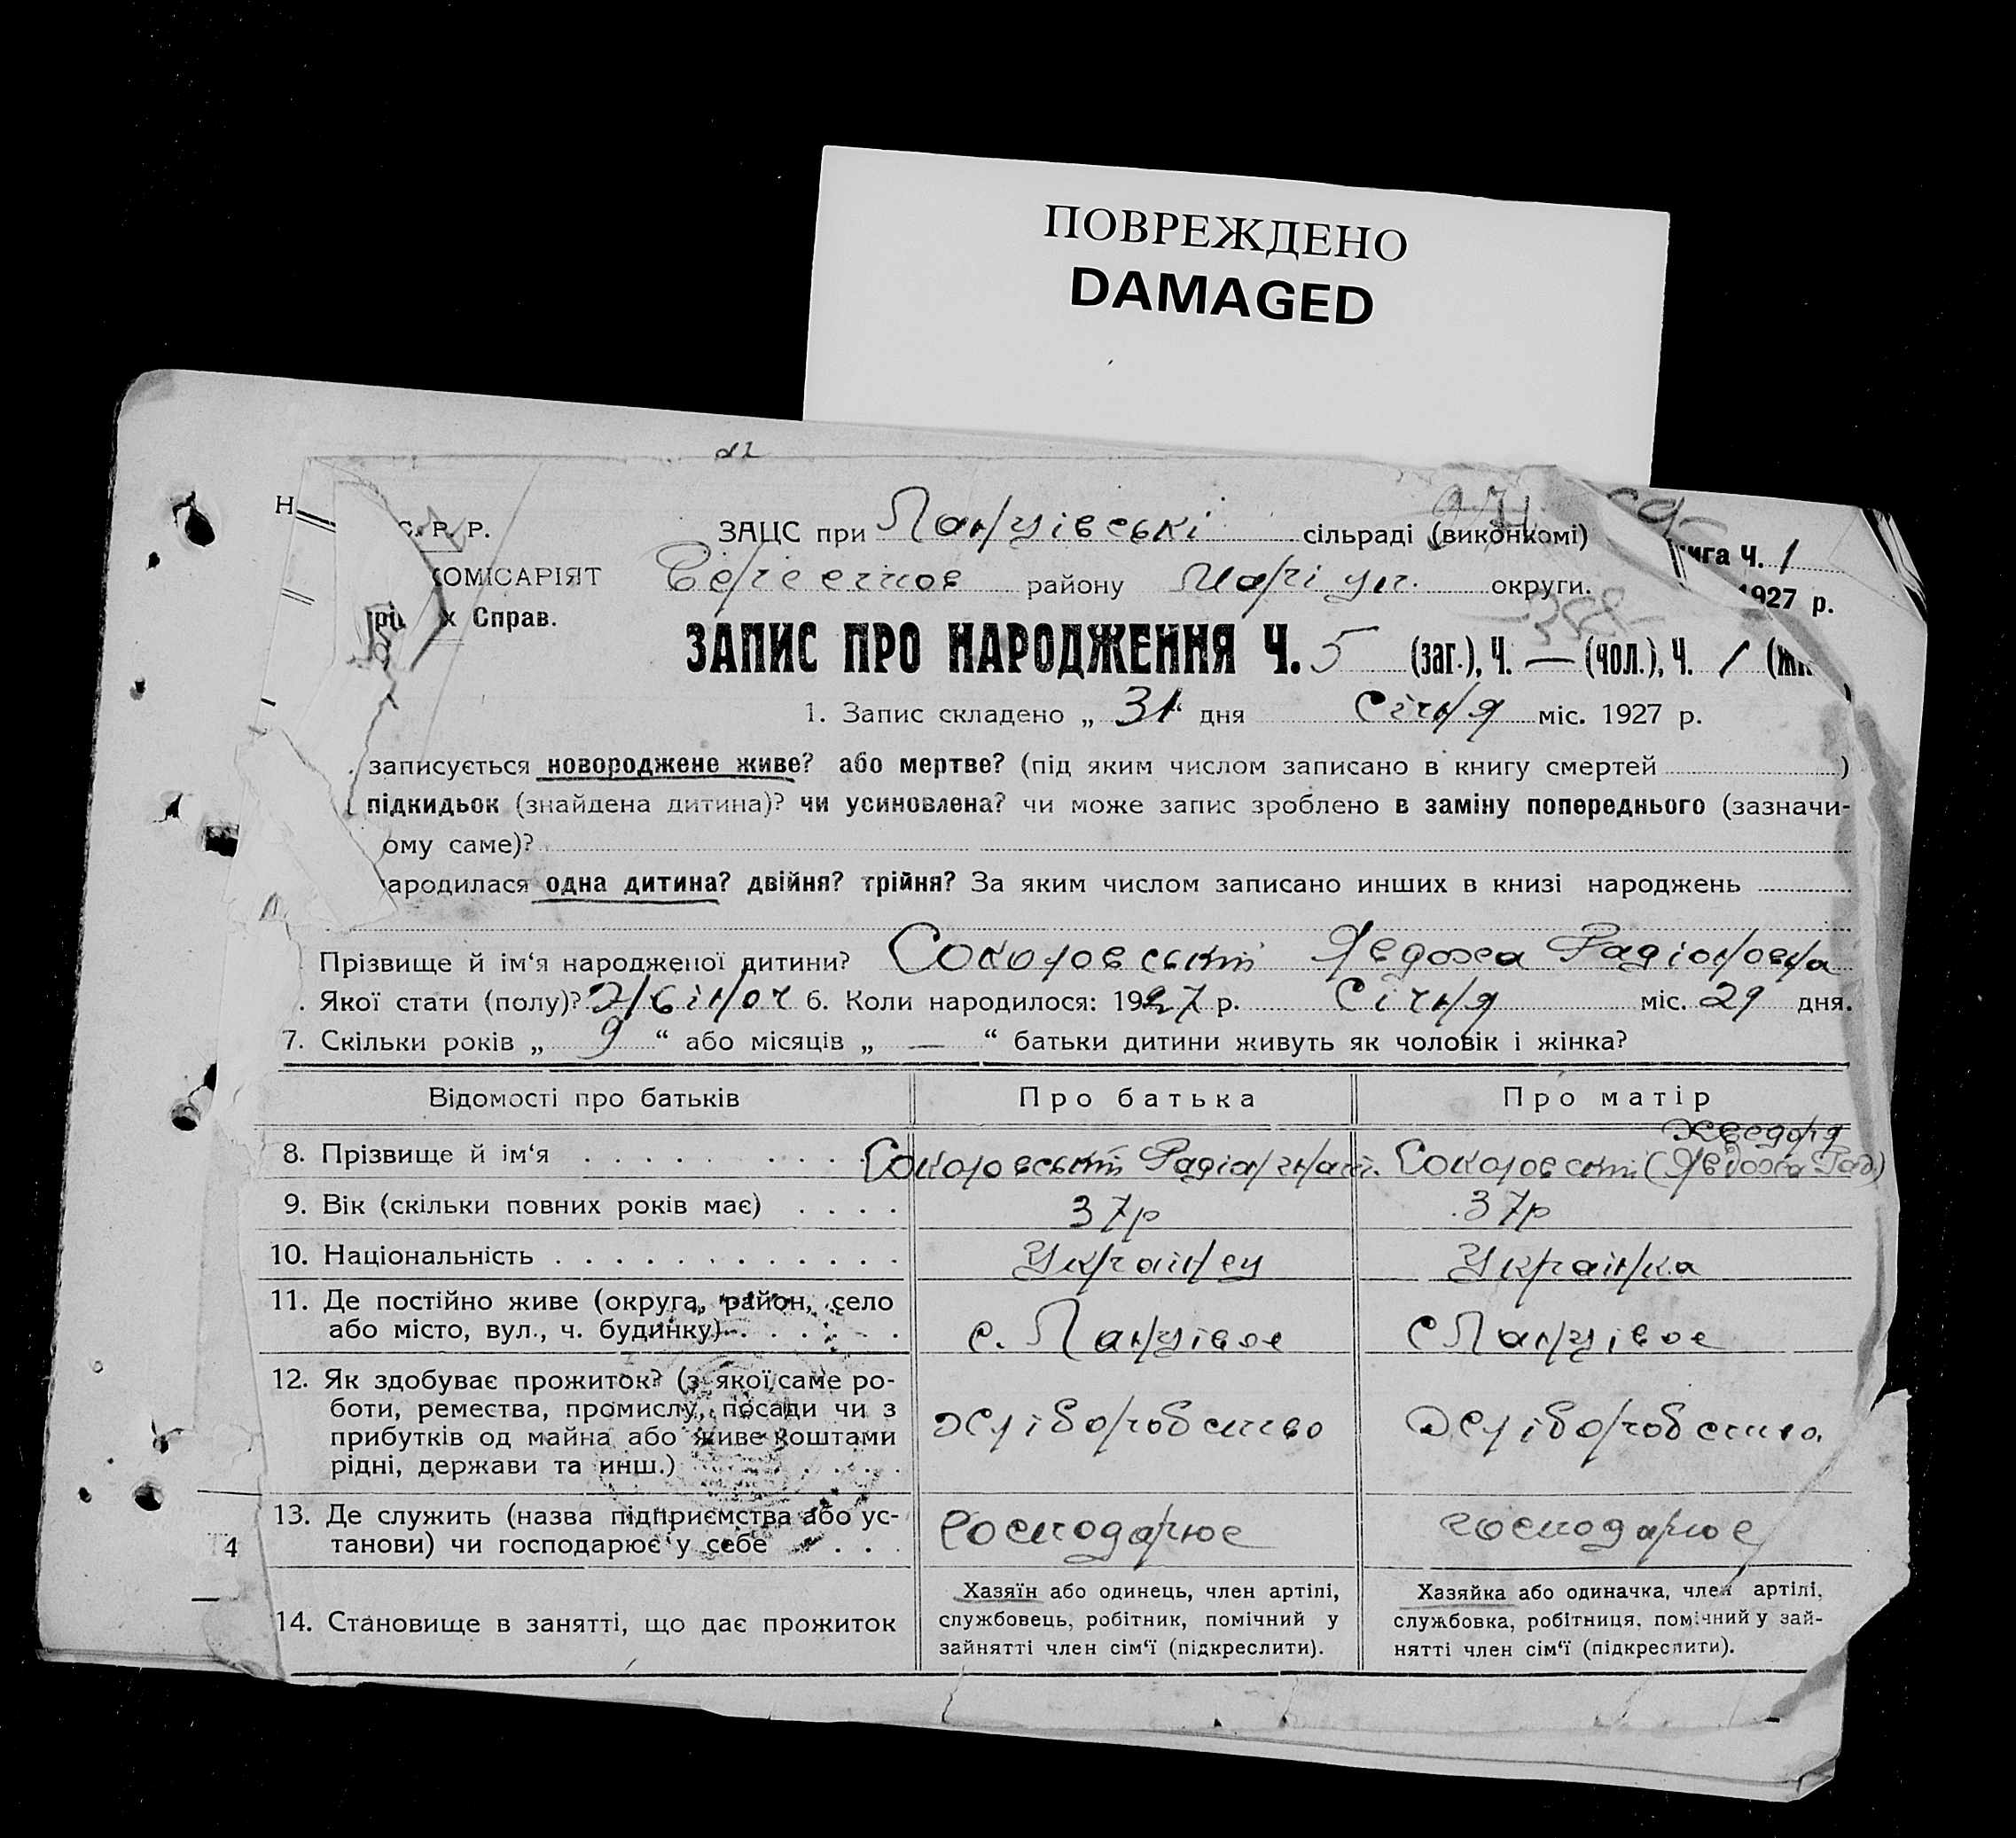 ПОВРЕЖДЕНО
DAMAGED
Н
С. Р. Р.
ЗАЦС при Ланціевські сільраді (виконкомі)
Книга Ч. 1
КОМІСАРІЯТ
району Маріуп. округи.
1927 р.
х Справ.
ЗАПИС ПРО НАРОДЖЕННЯ Ч. 5 (заг.), Ч. — (чол.), Ч. 1 (жі
1. Запис складено „ 31 “ дня Січня міс. 1927 р.
записується новороджене живе? або мертве? (під яким числом записано в книгу смертей )
підкидьок (знайдена дитина)? чи усиновлена? чи може запис зроблено в заміну попереднього (зазначи-
ому саме)?
ародилася одна дитина? двійня? трійня? За яким числом записано инших в книзі народжень
Прізвище й ім‘я народженої дитини? Соколовськ Явдоха Радіоновна
. Якої стати (полу)? Жіноч 6. Коли народилося: 1927 р. Січня міс. 29 дня.
7. Скільки років „ 9 “ або місяців „ — “ батьки дитини живуть як чоловік і жінка?
Відомості про батьків Про батька Про матір
8. Прізвище й ім‘я Соколовськ Соколовськ (Явдоха Рад)
Хведоря
9. Вік (скільки повних років має) 37р 37р
10. Національність Українец Українка
11. Де постійно живе (округа, район, село
або місто, вул., ч. будинку) с. Ланцівое с Ланцівое
12. Як здобуває прожиток? (з якої саме ро-
боти, ремества, промислу, посади чи з
прибутків од майна або живе коштами
рідні, держави та инш.) хліборобство хліборобство
13. Де служить (назва підприємства або ус-
танови) чи господарює у себе господарює господарює
4
14. Становище в занятті, що дає прожиток
Хазяїн або одинець, член артілі,
службовець, робітник, помічний у
зайнятті член сім‘ї (підкреслити).
Хазяйка або одиначка, член артілі,
службовка, робітниця, помічний у зай-
нятті член сім‘ї (підкреслити).